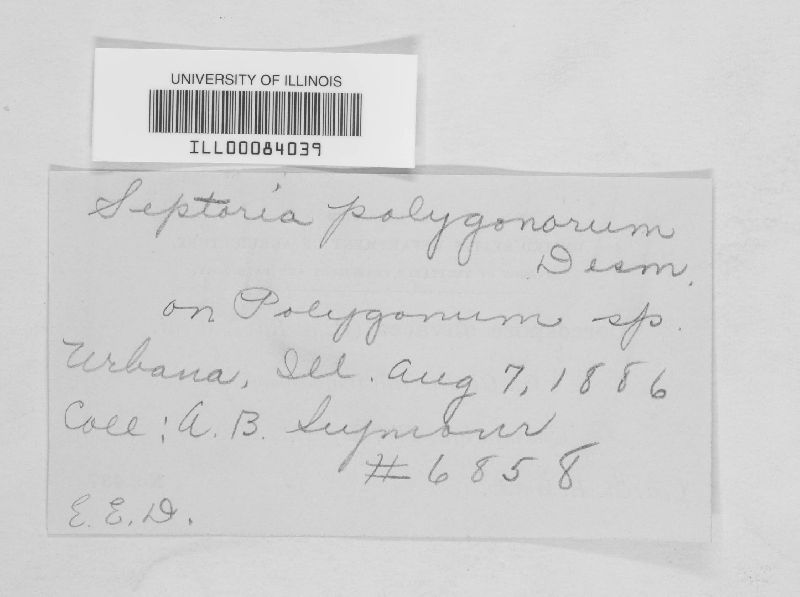 UNIVERSITY OF ILLINOIS
ILL00084039
Septoria polygonorum
Desm.
on Polygonum sp.
Urbana, Ill. Aug 7, 1886
Coll: A. B. Seymour
# 6858
E. E. D.